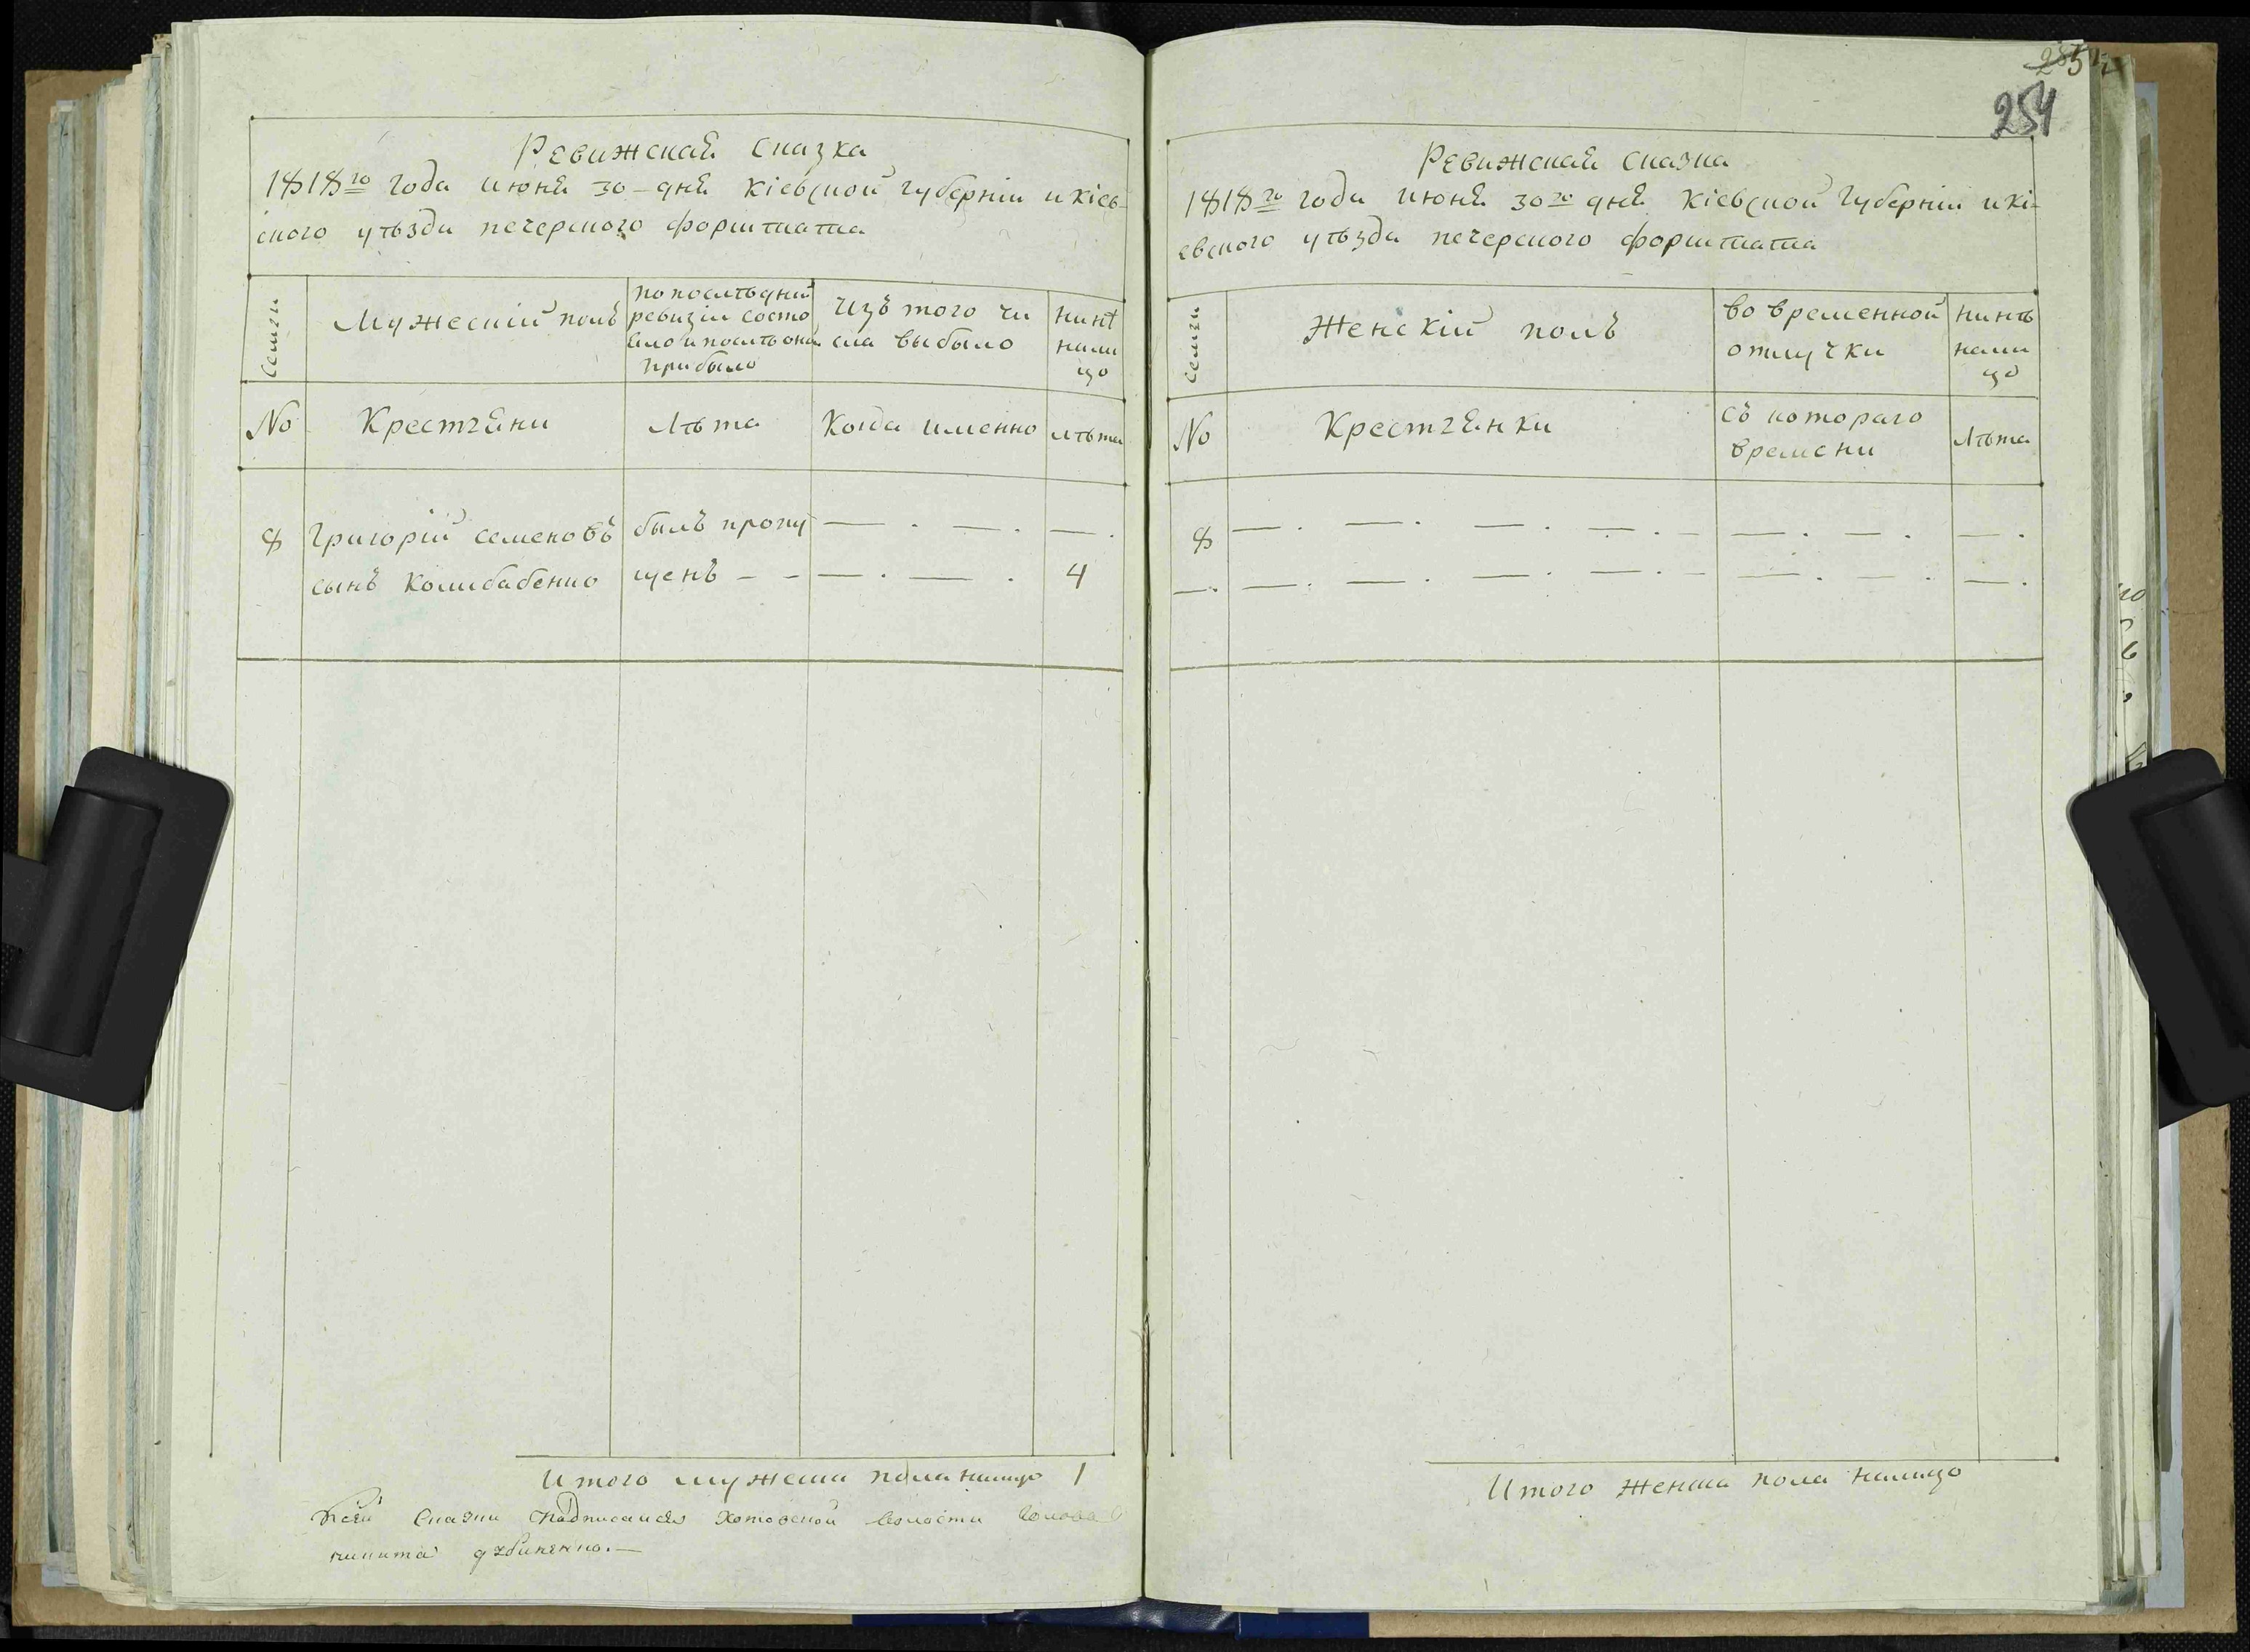 Ревижская Сказка
1818го года июня 30- дня Кіевской губерніи и кіев-
ского уѣзда печерского форштата
Семьи
Мужескій полъ
по послѣдней
ревизіи состо
яло и послѣ оной
прибыло
Изъ того чи
сла выбыло
нинѣ
нали
цо
No
Крестяни
Лѣта
Когда именно
лѣта
8
Григорій семеновъ
сынъ Колибабенко
былъ пропу
щенъ - -
4
Итого мужеска пола налицо 1
К сей Сказки надписался Хотовской волости Голова
никита дзбаненко.—
285
254
Ревижская Сказка
1818го года июня 30го дня Кіевской Губерніи и кі-
евского уѣзда печерского форштата
Семьи
Женскій полъ
во временной
отлучки
нинѣ
нали
цо
No
Крестянки
съ котораго
времени
Лѣта
8
Итого женска пола налицо